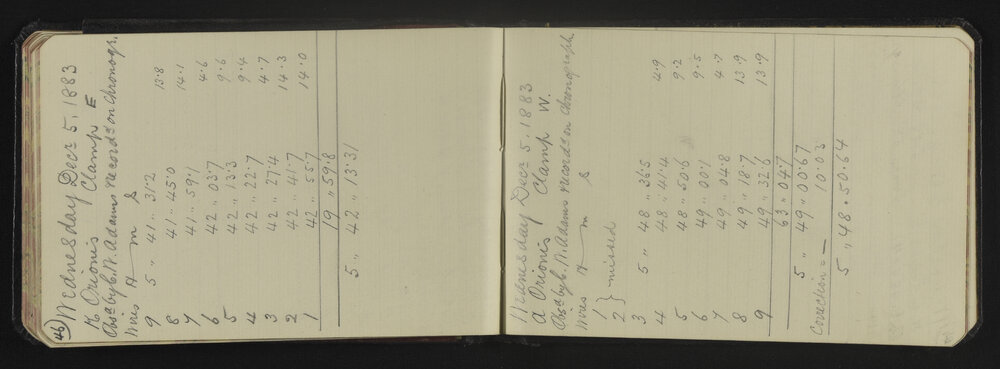 46) Wednesday Decr 5, 1883
K Orionis Clamp E
Obsd by C. W. Adams recordd on Chronogr.
Wires H m s
9 5 ,, 41 ,, 31.2 13.8
8 41 ,, 45.0 14.1
7 41 ,, 59.1 4.6
6 42 ,, 03.7 9.6
5 42 ,, 13.3 9.4
4 42 ,, 22.7 4.7
3 42 ,, 27.4 14.3
2 42 ,, 41.7 14.0
1 42 ,, 55.7
19 ,, 59.8
5 ,, 42 ,, 13.31
Wednesday Decr 5. 1883
A Orionis Clamp W.
Obsd by C. W. Adams recordd on Chronograph
Wires H m s
1 } missed
2
3 5 ,, 48 ,, 36.5 4.9
4 48 ,, 41.4 9.2
5 48 ,, 50.6 9.5
6 49 ,, 00.1 4.7
7 49 ,, 04.8 13.9
8 49 ,, 18.7 13.9
9 49 ,, 32.6
63 ,, 04.7
5 ,, 49 ,, 00.67
Correction = - 10.03
5 ,, 48 . 50.64